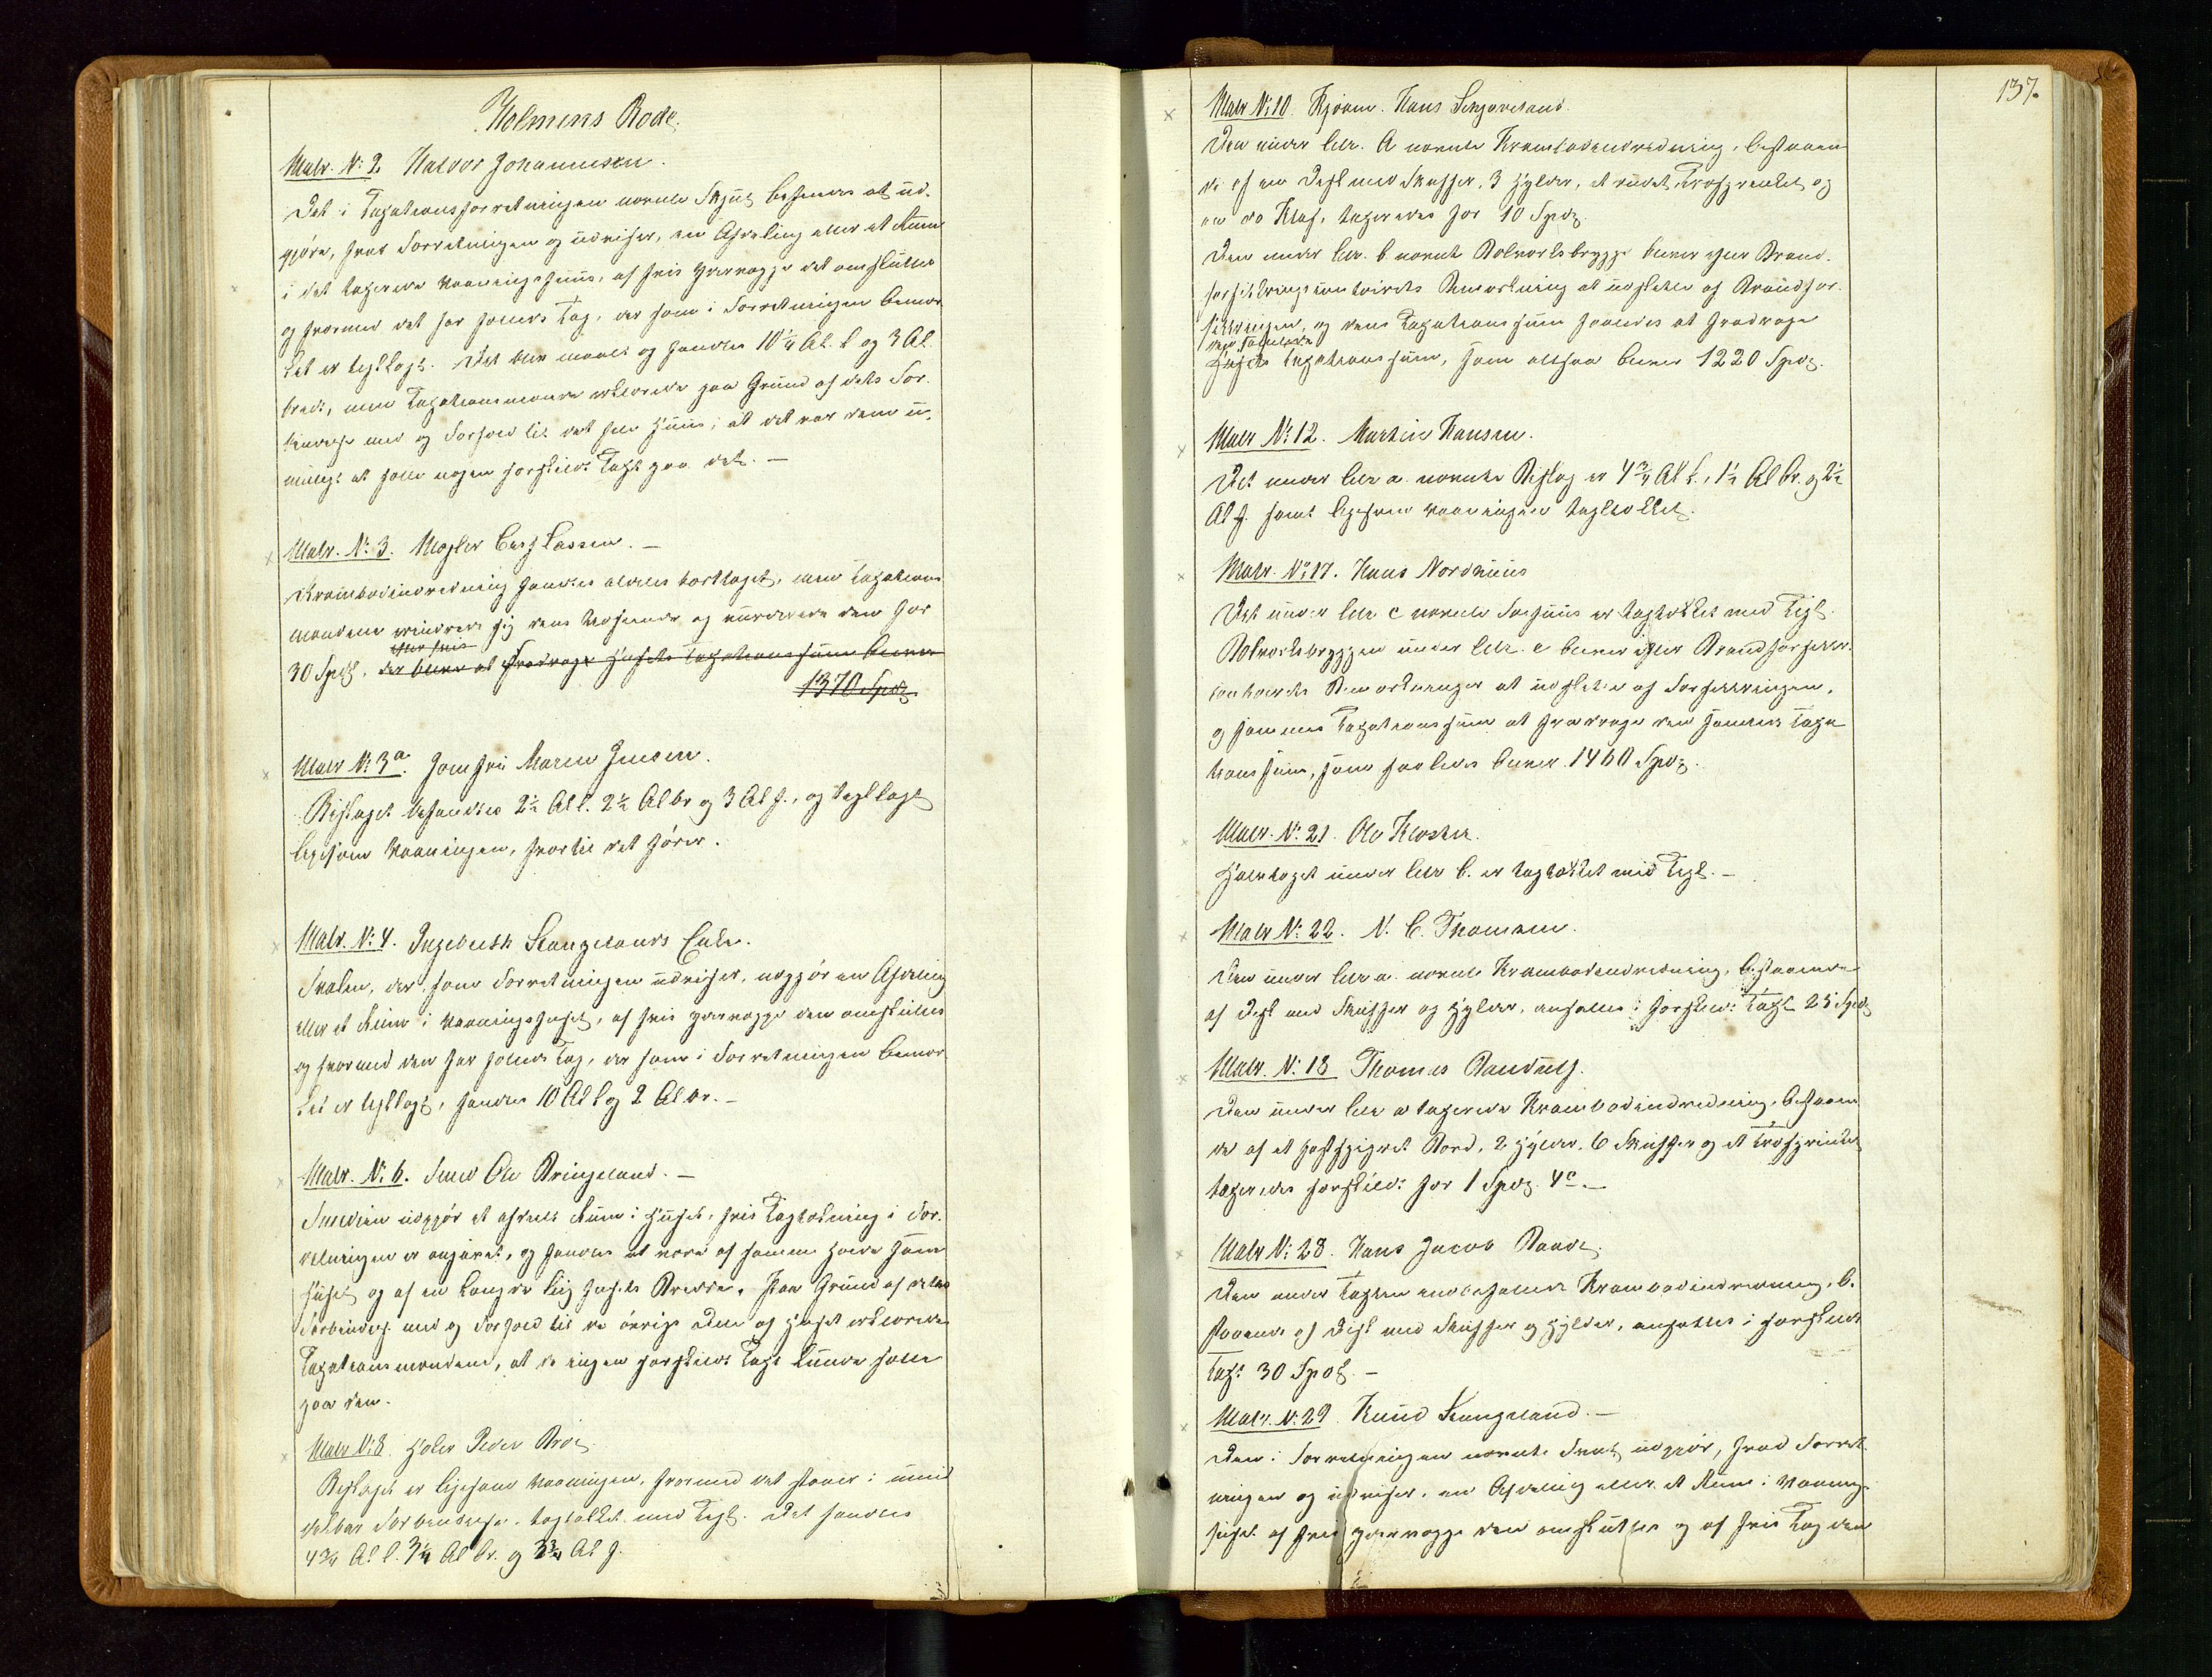 Holmens Rode.
Matr. No: 2 Halvor Johannesen.
Det i Taxationsforretningen nævnte Skjul befandtes at ud-
gjøre, hvad Forretningen og udviser, en Afdeling eller et Rum
i det taxerede Vaaningshuus, af hvis Ydervægge det omsluttes
og hvormed det har fælleds Tag, der som i Forretningen bemær-
ket er tegllagt. Det blev maalt og fandtes 10 1/4 Al. l og 3 Al
bredt, men Taxationsmændene erklærede paa Grund af dets For-
bindelse med og Forhold til det hele Huus, at det var dem u-
muligt at sætte nogen særskilt Taxt paa det. —
Matr. No: 3. Mægler Lassen. —
Krambodindredning fandtes aldeles borttaget, men Taxations
mændene erindrede sig dens Udseende og vurderede den for
efter hvis
30 Spd, der bliver at fradrage Husets Taxationssum bliver
1370 Spd
Matr No: 3a. Jomfru Maren Jensen.
Bislaget befandtes 2 1/2 Al l. 2 1/2 Al br og 3 Al h., og tegllagt
ligesom Vaaningen, hvortil det hører.
Matr. No: 4. Ingebreth Stangelands Enke.
Svalen, der, som Forretningen udviser, udgjør en Afdeling
eller et Rum i Vaaningshuset, af hvis Ydervægge den omsluttes
og hvormed den har fælleds Tag, der som i Forretningen bemær
ket er tegllagt, fandtes 10 Al l og 2 Al br. —
Matr. No: 6. Smed Ole Bringeland. —
Smedien udgjør et afdelt Rum i Huset, hvis Tagtækning i For-
retningen er angivet, og fandtes at være af samme Høide som
Huset og af en Længde lig Husets Bredde. Paa Grund af dettes
Forbindelse med og Forhold til de øvrige Dele af Huset erklærede
Taxationsmændene, at de ingen særskilt Taxt kunde sætte
paa den.
Matr No: 8. Peder Broe
Bislaget er ligesom Vaaningen, hvormed det staaer i umid
delbar Forbindelse, tagtækket med Tegl. Det fandtes
4 3/4 Al l. 3 1/4 Al br. og 3 3/4 Al h.
137.
Matr No: 10. Hans Skjæveland.
Den under litr. A nævnte Krambodindredning, bestaaen
de af en Disk med Skuffer, 3 Hylder, et rundt og
en do taxeredes for 10 Spd.
Den under litr. b nævnte Bolværksbrygge bliver efter Brand-
forsikringscontoirets Bemærkning at udslette af Brandfor-
sikringen, og dens Taxationssum saaledes at fradrage
Husets Taxationssum, som altsaa bliver 1220 Spd.
Matr No: 12. Martin Hansen.
Det under litr a. nævnte Bislag er 4 3/4 Al l., 1 1/2 Al br. og 2 1/2
Al h. samt ligesom Vaaningen tagtækket.
Matr. No: 17. Hans Nordhuus
Det under litr c nævnte Søehuus er tagtækket med Tegl.
Bolværksbryggen under litr. e bliver efter Brandforsikr.
contoirets Bemærkninger at udslette af Forsikringen,
og sammes Taxationssum at fradrage den samlede Taxa
tionssum, som saaledes bliver 1460 Spd.
Matr. No: 21. Ole Kloster.
Halvtaget under litr b. er tagtækket med Tegl. —
Matr No: 22. N. C. Thomsen.
Den under litr a. nævnte Krambodindredning, bestaaende
af Disk med Skuffer og Hylder, ansattes i særskilt Taxt 25 Spd
Matr. No: 18 Thomas Randulf.
Den under litr a taxerede Krambodindredning, bestaaen
de af et fastspigret Bord, 2 Hylder, 6 Skuffer og et
taxeredes særskilt for 1 Spd. 4
Matr No: 28. Hans Jacob Raade.
Den under Taxten indbefattede Krambodindredning, be-
staaende af Disk med Skuffer og Hylder, ansattes i særskilt
Taxt 30 Spd. —
Matr. No: 29. Knud Stangeland. —
Den i Forretningen nævnte Sval udgjør, hvad Forret-
ningen og udviser, en Afdeling eller et Rum i Vaanings
huset af hvis Ydervægge den omsluttes og af hvis Tag den